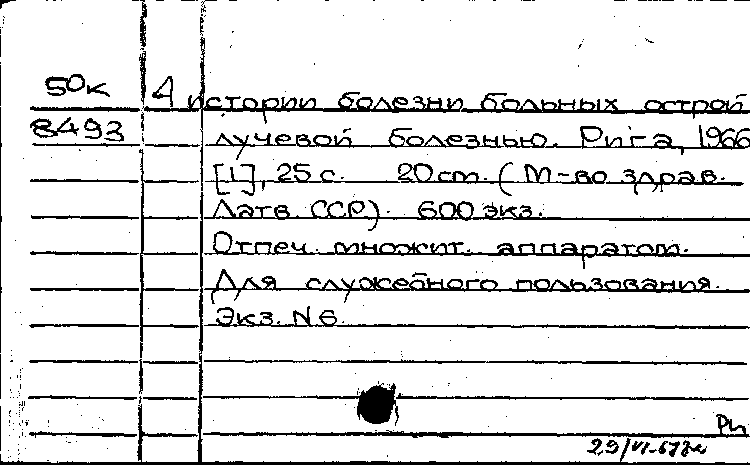 50к 4 истории болезни больных острой
8493 лучевой болезнью. Рига, 1966
[1], 25 с. 20 cm. (М-во здрав.
Латв. ССР). 600 экз.
Отпеч. множит. аппаратом.
Для служебного пользования.
Экз. N 6.
Рп
29/VI-67